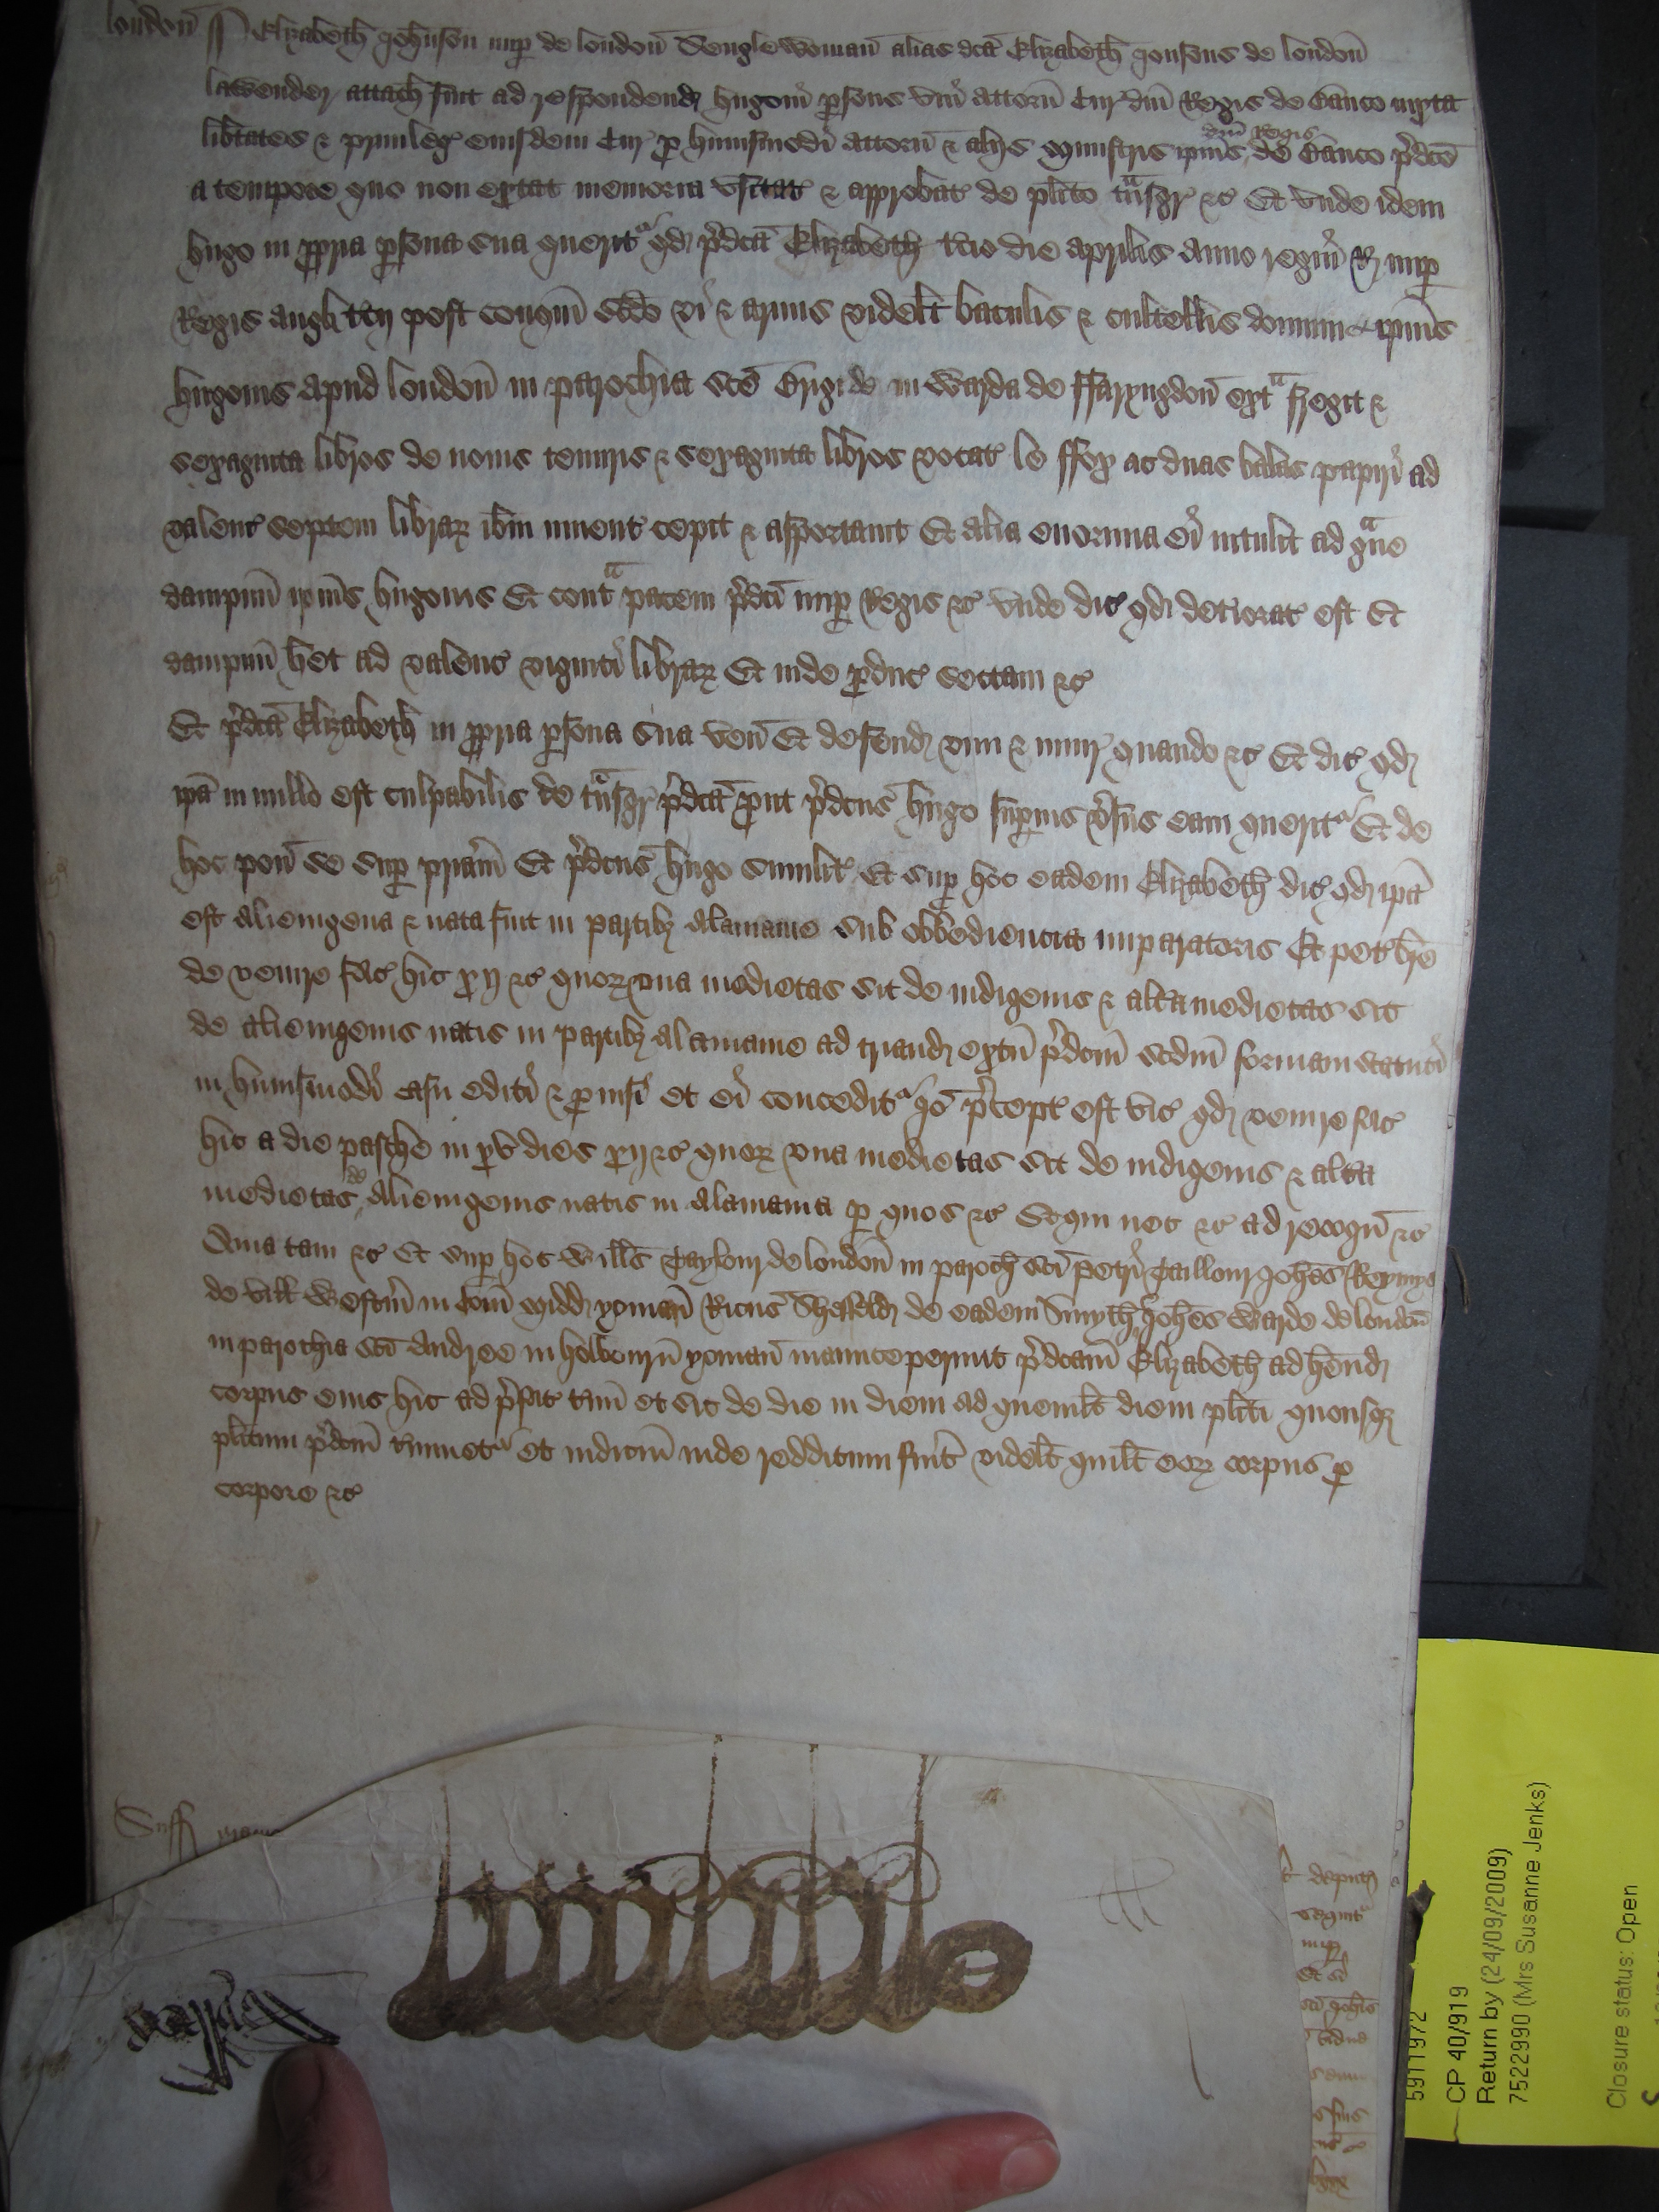 london ss Elizabeth Johnson nup de london Senglewoman alias dca Elizabeth Jonsons de london
lavender attach fuit ad respondend hugoni psons vni attorn Cur dni Regis de Banco iuxta
libtates & privileg eiusdem Cur p huiusmodi attorn & alijs Ministris ipius dni Regis de Banco pdco
a tempore quo non extat memoria vsitat & approbat de plito tnsgr &c Et vnde idem
hugo in ppria psona sua querit qd pdca Elizabeth tcio die aprilis anno regni R nup
Regis angl tcij post conqm scdo vi & armis videlt baculis & cultellis domum ipius
hugonis apud london in parochia sce Brigide in warda de ffaryngdon ext fregit &
sexaginta libros de nouis tenuris & sexaginta libros vocat le ffox ac duas balas papiri ad
valenc septem librar ibm invent cepit & asportauit Et alia enormia ei intulit ad gue
dampnu ipius hugonis Et cont pacem pdci nup Regis &c vnde dic qd detiorat est Et
dampnu het ad valenc viginti librar Et inde pduc sectam &c
Et pdca Elizabeth in ppria psona sua ven Et defend vim & iniur quando &c Et dic qd
ipa in nullo est culpabilis de tnsgr pdca put pdcus hugo supius vsus eam querit Et de
hoc pon se sup priam Et pdcus hugo similit Et sup hoc eadem Elizabeth dic qd ipa
est alienigena & nata fuit in partib3 alamanie sub obbediencia imparatoris Et pet bre
de venire fac hic xij &c quor vna medietas sit de indigenis & altа medietas sit
de alienigenis natis in partib3 alamanie ad triand exitu pdcm scdm formam statuti
in huiusmodi casu editi & puisi et ei conceditr Io pcept est vic qd venire fac
hic a die pasche in xv dies xij &c quor vna medietas sit de indigenis & alta
medietas de alienigenis natis in alamania p quos &c Et qui nec &c ad recogn &c
Quia tam &c Et sup hoc Wills Taylour de london in paroch sci petri Taillour Johes Reynys
de vill Westm in Com Midd yoman Ricus Sheffeld de eadem Smyth & Johes Warde de london
in parochia sci Andree in holbourn yoman manuceperunt pdcam Elizabeth ad hend
corpus eius hic ad pfat tmi et sic de die in diem ad quemlt diem pliti quousq
plitum pdcm tminet et iudiciu inde redditum fuit videlt quilt eor corpus p
corpore &c
Suff
5911972
CP 40/919
Return by (24/09/2009)
7522990 (Mrs Susanne Jenks)
Closure status: Open